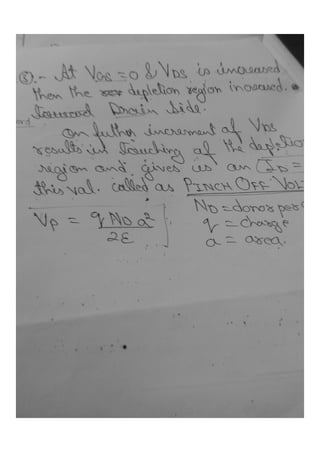 ⑧.- At VGS = 0 & VDS is increased
then the depletion region increased.
toward Drain Side.
on futher increment of VDS
results in touching of the depletio
region and gives us an (ID =
this val. called as PINCH OFF VOL
VP = q ND a² / 2ε
ND = donor per c
q = charge
a = area.